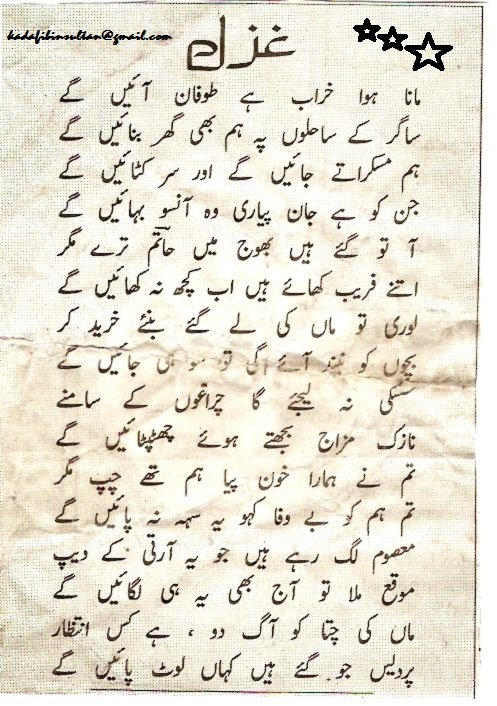 kadafibinsultan@gmail.com
غزل
مانا ہوا خراب ہے طوفان آئیں گے
ساگر کے ساحلوں پہ ہم بھی گھر بنائیں گے
ہم مسکراتے جائیں گے اور سر کٹائیں گے
جن کو ہے جان پیاری وہ آنسو بہائیں گے
آ تو گئے ہیں بھوج میں حاتم ترے مگر
اتنے فریب کھائے ہیں اب کچھ نہ کھائیں گے
لوری تو ماں کی لے گئے بنئے خرید کر
بچوں کو نیند آئے گی تو سو ہی جائیں گے
سسکی نہ لیجئے گا چراغوں کے سامنے
نازک مزاج بجھتے ہوئے چھٹپٹائیں گے
تم نے ہمارا خون پیا ہم تھے چپ مگر
تم ہم کو بے وفا کہو یہ سہہ نہ پائیں گے
معصوم لگ رہے ہیں جو یہ آرتی کے دیپ
موقع ملا تو آج بھی یہ ہی لگائیں گے
ماں کی چتا کو آگ دو ، ہے کس انتظار
پردیس جو گئے ہیں کہاں لوٹ پائیں گے